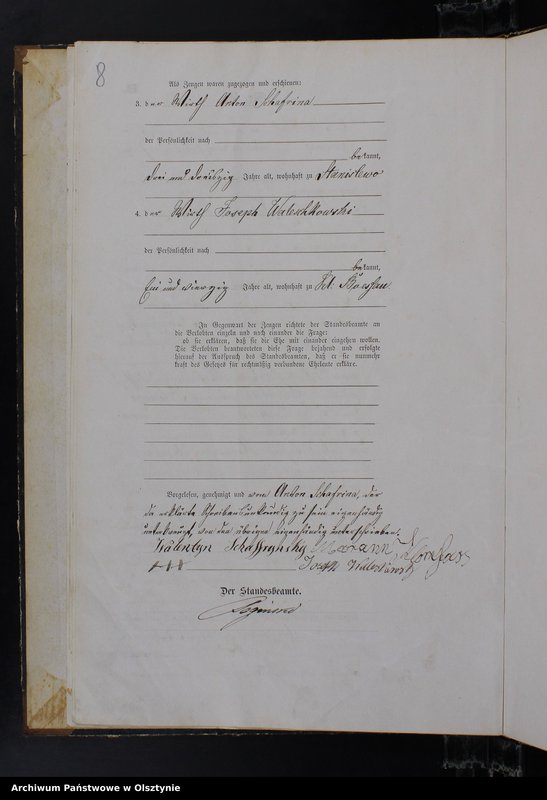 8
Als Zeugen waren zugezogen und erschienen:
3. der Wirth Anton Schafrina
der Persönlichkeit nach
bekannt,
drei und dreißig Jahre alt, wohnhaft zu Stanislewo
4. der Wirth Joseph Waleschkowski
der Persönlichkeit nach
bekannt,
Ein und vierzig Jahre alt, wohnhaft zu
In Gegenwart der Zeugen richtete der Standesbeamte an
die Verlobten einzeln und nach einander die Frage:
ob sie erklären, daß sie die Ehe mit einander eingehen wollen.
Die Verlobten beantworteten diese Frage bejahend und erfolgte
hierauf der Ausspruch des Standesbeamten, daß er sie nunmehr
kraft des Gesetzes für rechtmäßig verbundene Eheleute erkläre.
Vorgelesen, genehmigt und vom Anton Schafrina, der
da erklärte Schreibensunkundig zu sein eigenhändig
unterkreuzt, von den übrigen eigenhändig unterschrieben.
Walentyn
+++ Joseph
Der Standesbeamte.
Archiwum Państwowe w Olsztynie